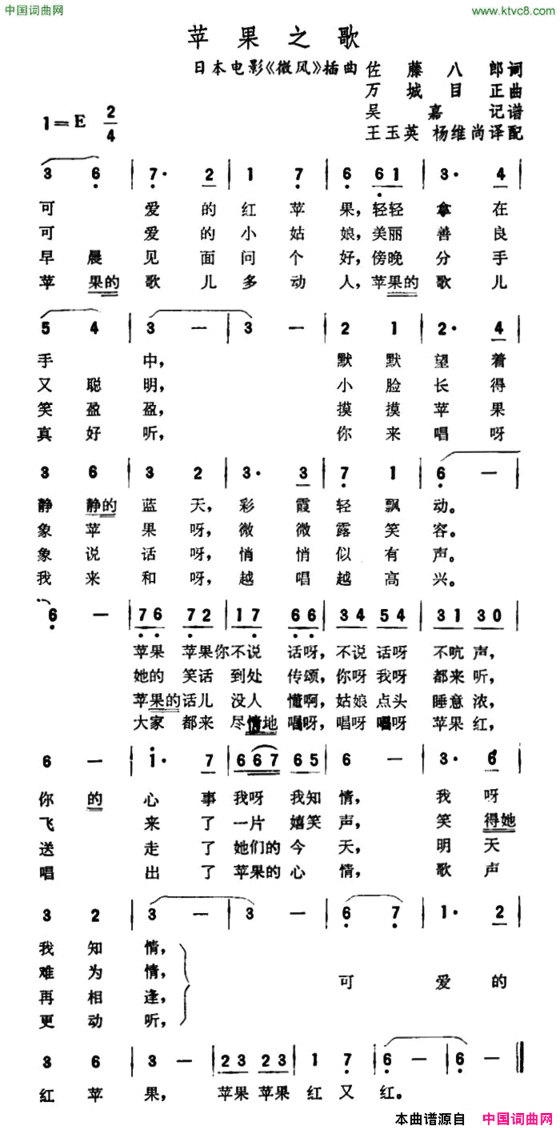 中国词曲网
www.ktvc8.com
苹果之歌
日本电影《微风》插曲 佐藤八郎词
万城目正曲
吴嘉记谱
王玉英 杨维尚译配
1=E 2/4
3 6 | 7· 2 | 1 7 | 6 6 1 | 3· 4 |
可爱的红苹果,轻轻拿在
可爱的小姑娘,美丽善良
早晨见面问个好,傍晚分手
苹果的歌儿多动人,苹果的歌儿
5 4 | 3 — | 3 — | 2 1 | 2· 4 |
手中, 默默望着
又聪明, 小脸长得
笑盈盈, 摸摸苹果
真好听, 你来唱呀
3 6 | 3 2 | 3· 3 | 7 1 | 6 — |
静静的蓝天,彩霞轻飘动。
象苹果呀,微微露笑容。
象说话呀,悄悄似有声。
我来和呀,越唱越高兴。
6 — | 76 72 | 17 66 | 34 54 | 31 30 |
苹果 苹果你不说 话呀,不说话呀 不吭声,
她的 笑话 到处 传颂,你呀我呀 都来听,
苹果的话儿 没人 懂啊,姑娘点头 睡意浓,
大家 都来 尽情地 唱呀,唱呀唱呀 苹果红,
6 — | 1· 7 | 667 65 | 6 — | 3· 6 |
你的心事我呀 我知情,我呀
飞来了一片 嬉笑声,笑得她
送走了她们的 今天,明天
唱出了苹果的心情,歌声
3 2 | 3 — | 3 — | 6 7 | 1· 2 |
我知情,
难为情,
再相逢,
更动听,
可爱的
3 6 | 3 — | 23 23 | 1 7 | 6 — | 6 — ‖
红苹果, 苹果 苹果 红又红。
本曲谱源自 中国词曲网